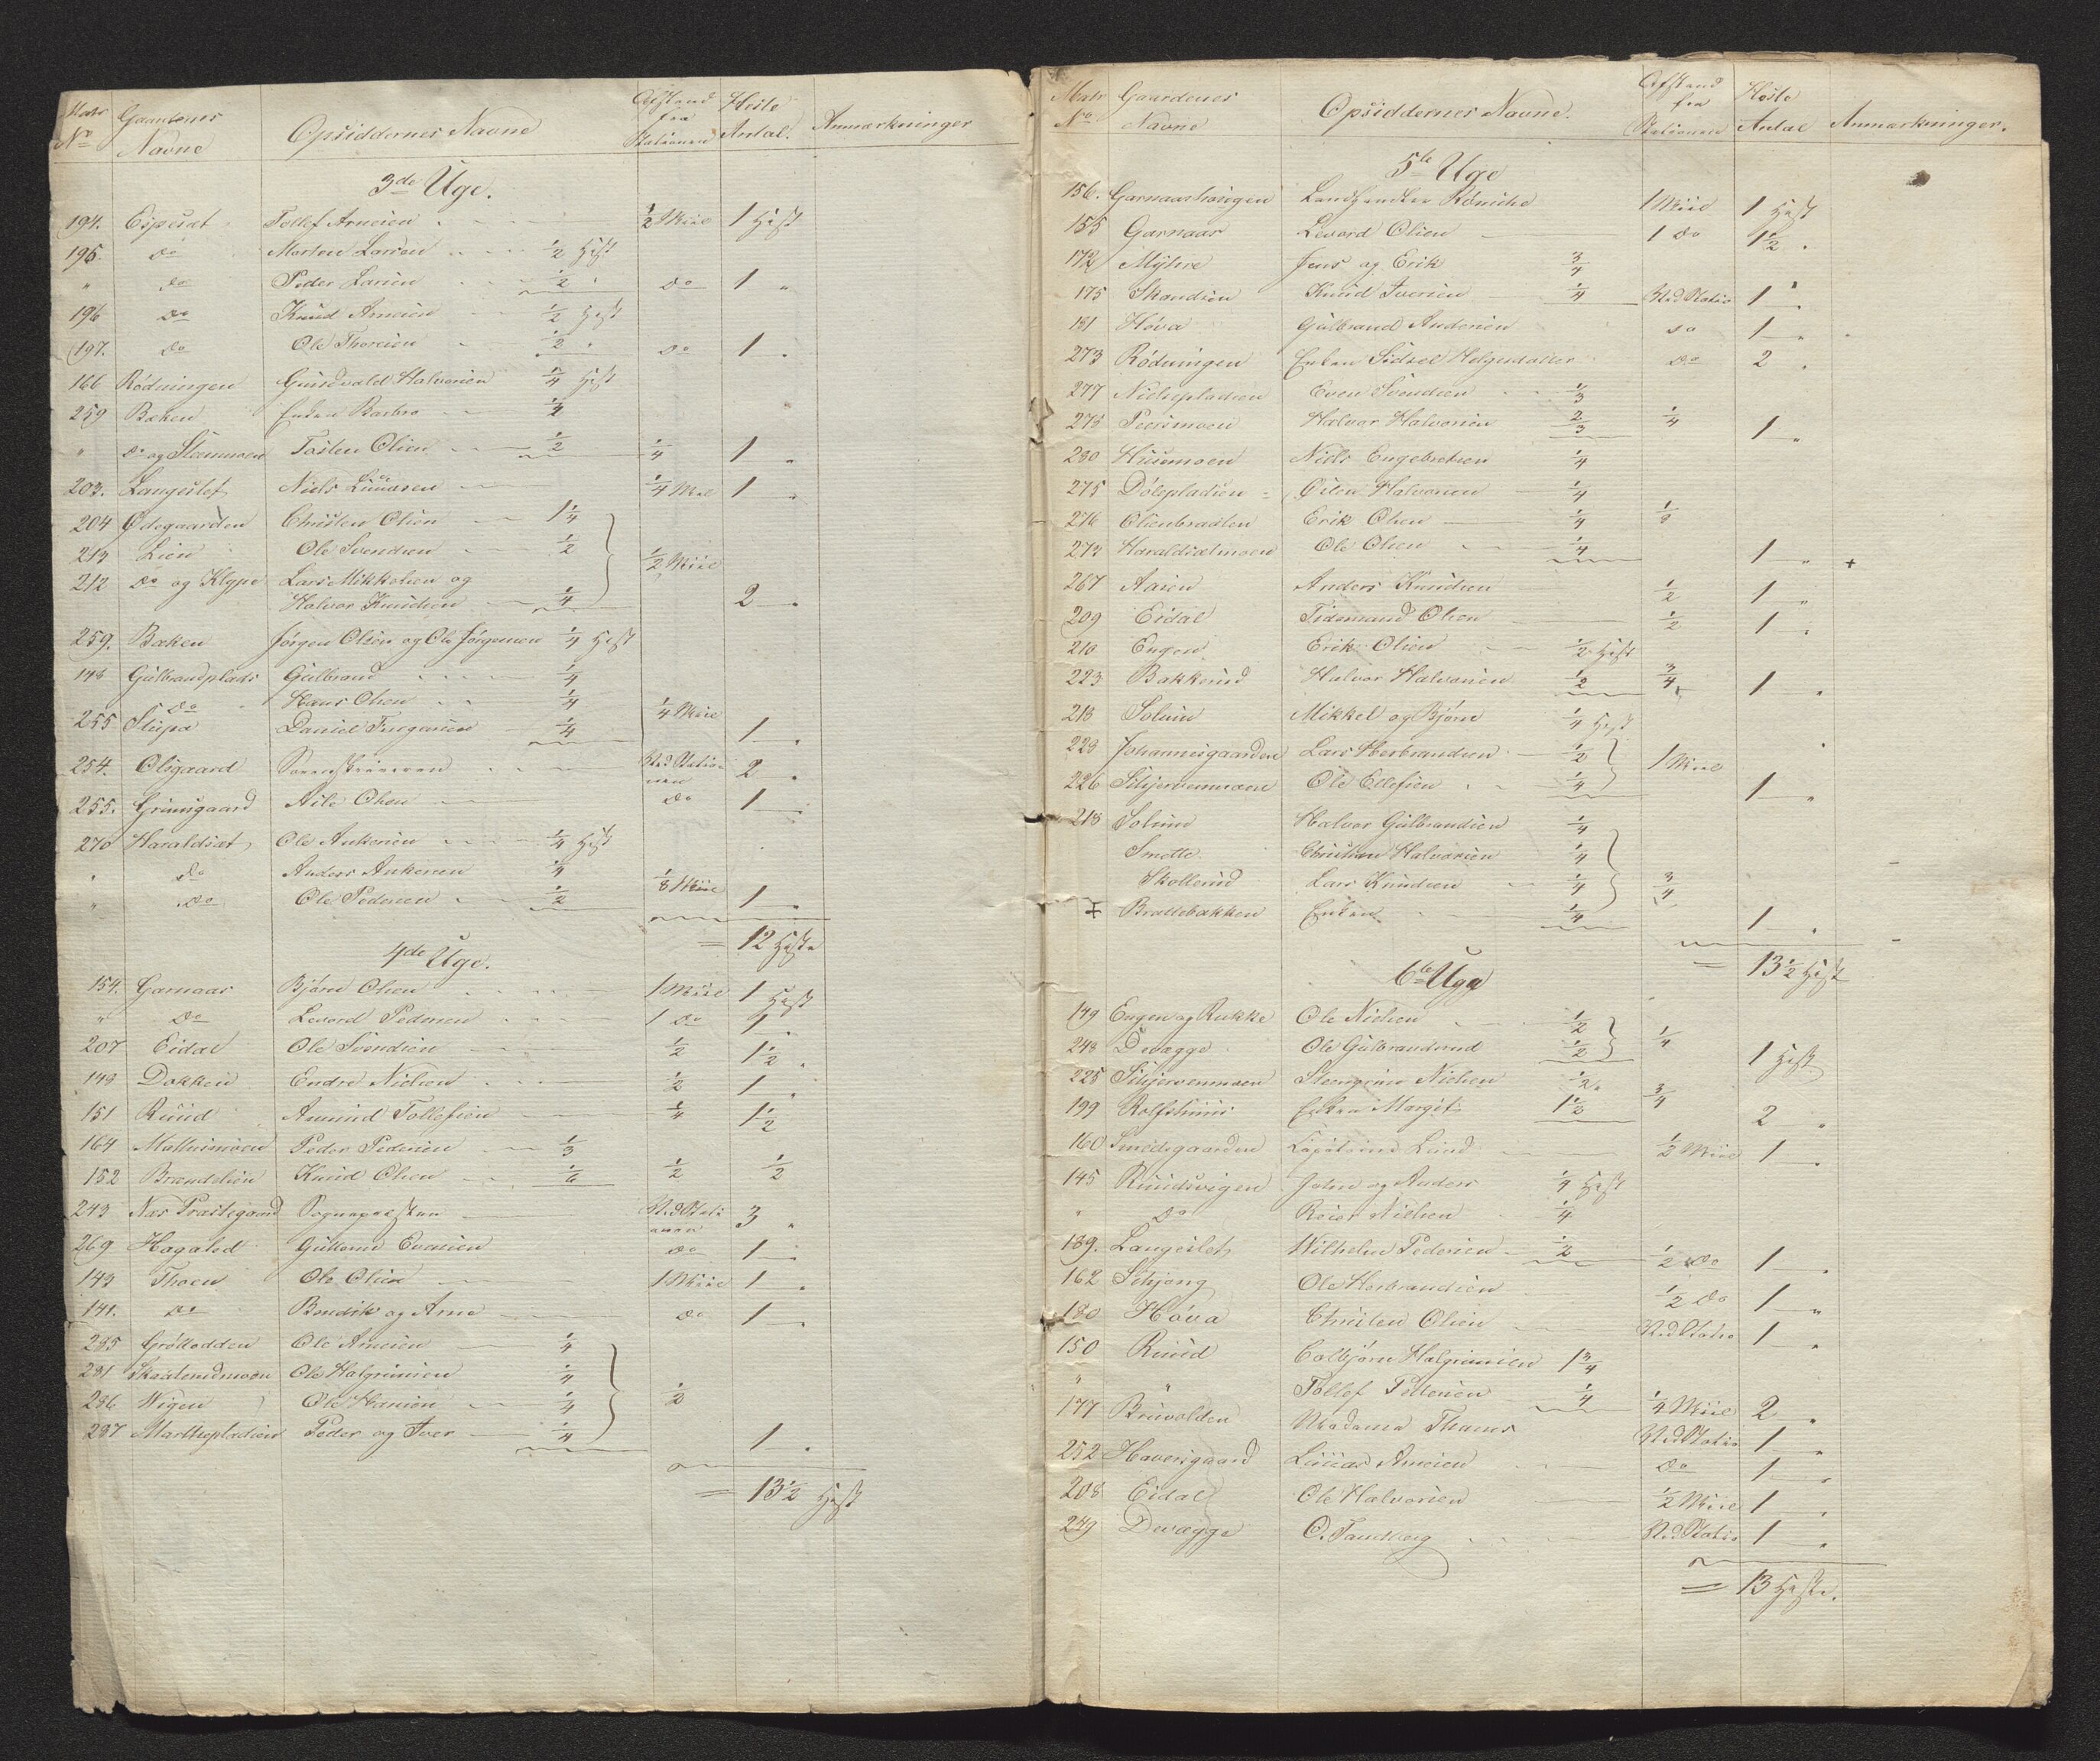 Matr No Gaardenes Navne Opsiddernes Navne Afstand fra Stationen Heste Antal. Anmærkninger
3de Uge.
194. Espesæt Tollef Arnesen ½ Miil 1 Hest
195. do Morten Larsen ½ Hest
" do Peder Larsen ½ " do 1 "
196 do Knud Arnesen ½ Hest
197. do Ole Thoresen ½ " do 1 "
166 Rödningen Gundvald Halvorsen ¼ Hest
259 Bæken Enken Barbro ¼
" do og Steenmoen Tosten Olsen ½ ¼ 1 "
203. Langeslet Niels ¼ Mil 1 "
204 Ødegaarden Christen Olsen 1¼
213 Lien Ole Svendsen ½ ½ Miil
212 do og Klype Lars Mikkelsen og
Halvor Knudsen ¼ 2 "
259. Bæken Jörgen Olsen og Ole Jörgensen ¼ Hest
148 Gulbrandplads Gulbrand ¼
do Hans Olsen ¼
255 Stupa Daniel ¼ ¼ Miil 1 "
254. Olsgaard Sorenskriveren Ved Stationen 2 "
255. Grimsgaard Nils Olsen do 1 "
270 Haraldsæt, Ole Ankersen ¼ Hest
" do Anders Ankersen ¼
" do Ole Pedersen ½ ⅛ Miil 1 "
= 12 Heste
4de Uge.
154. Garnaas Björn Olsen 1 Miil 1 Hest
" do Levord Pedersen 1 do 1 "
207 Eidal Ole Svendsen ½ 1½ "
149 Dokken Endre Nielsen ½ 1 "
151 Ruud Amund Tollefsen ¼ 1½
164 Peder Pedersen ⅓
152 Brændelien Knud Olsen ½ ½
243 Næs Præstegaard Sognepresten Ved Stationen 3 "
269 Hagaled Guttorm Evensen do 1 "
143 Thoen Ole Olsen 1 Miil 1 "
141. do Bendik og Arne do 1 "
285 Gröttodden Ole Arnesen ¼
281 Ole Halgrimsen ¼
286 Wigen Ole Hansen ¼ ½
287 Marthepladsen Peder og Iver ¼ 1 "
= 13½ Hest
Matr No Gaardenes Navne Opsiddernes Navne. Afstand fra Stationen Heste Antal Anmærkninger.
5te Uge
156. Garnaashaugen Landhandler 1 Miil 1 Hest
155 Garnaas Levord Olsen 1 do 1½ "
172 Myhre Jens og Erik ¾
175 Skandsen Knud Iversen ¼ Ved Statio 1 "
181 Höva Gulbrand Andersen do 1 "
273 Rödningen Enken Sidsel Helgesdatter do 2 "
277 Nielsepladsen Even Svendsen ⅓
278 Peersmoen Halvor Halvorsen ⅔ ¼ 1 "
280 Huusmoen Niels Engebretsen ¼
275 Dölepladsen Halvorsen ¼
276 Olsenbraaten Erik Olsen ¼ ⅛
273 Haraldsætmoen Ole Olsen ¼ 1 " +
267 Aasen Anders Knudsen ½ 1 "
209 Eidal Tidemand Olsen ½ 1 "
210 Engen Erik Olsen ½ Hest
223 Bakkerud Halvor Halvorsen ½ ¾ 1 "
218 Solum Mikkel og Björn ¼ Hest
228 Johannesgaarden Lars Herbrandsen ½ 1 Miil
226 Ole Ellefsen ¼ 1 "
218 Solum Halvor Gulbrandsen ¼
Smette Christian Halvorsen ¼
Skollerud Lars Knudsen ¼ ¾
+ Brattebakken Enken ¼ 1 "
= 13½ Hest
6te Uge
149 Engen og Rukke Ole Nielsen ½
248 Devegge Ole Gulbrandsrud ½ ¼ 1 Hest
225 Steengrim Nielsen ½ "
199 Rolfshuus Enken Margit 1½ ¾ 2 "
160 Smedsgaarden Lund ½ Miil 1 "
145 Ruudsvigen John og Anders ¼ Hest
" do Reier Nielsen ¼
189. Langeslet Wilhelm Pedersen ½ ½ do 1 "
162 Schjong Ole Herbrandsen ½ do 1 "
180 Höva Christen Olsen Ved Statio 1 "
150 Ruud Colbjörn Halgrimsen 1¾
" " Tollef Pettersen ¼ ¼ Miil 2 "
177 Bruvolden Madame Thames Ved Statio 1 "
252 Haversgaard Arnesen do 1 "
208 Eidal Ole Halvorsen ½ Miil 1 "
249 Devægge O. Sandberg Ved Statio 1 "
= 13 Heste.